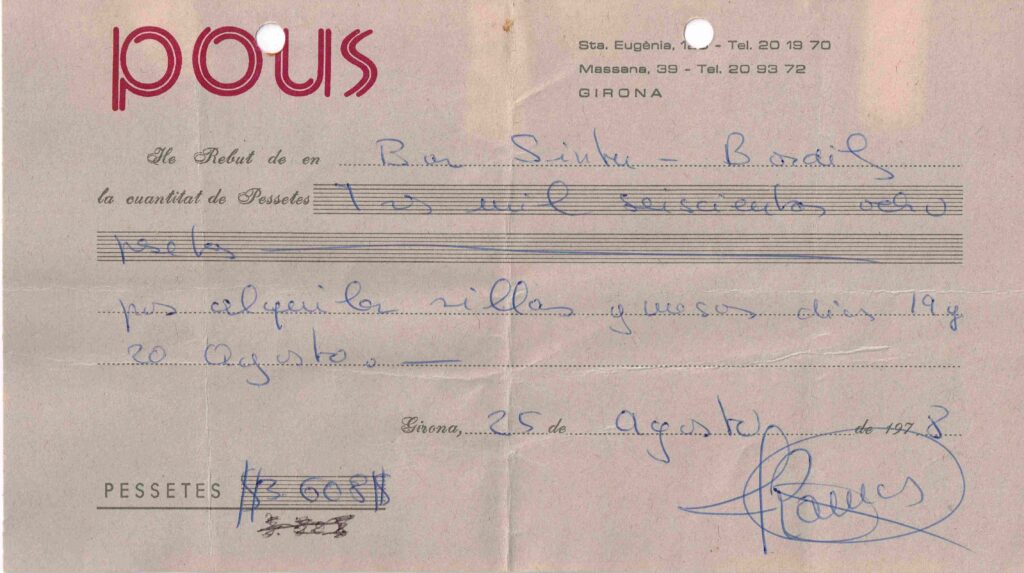 pous
Sta. Eugènia, - Tel. 20 19 70
Massana, 39 - Tel. 20 93 72
GIRONA
He Rebut de en Bar Sintu - Bordils
la cuantitat de Pessetes Tres mil seiscientos ocho
pesetas
por alquiler sillas y mesas días 19 y
20 Agosto. —
Girona, 25 de Agosto de 1978
PESSETES 3.608